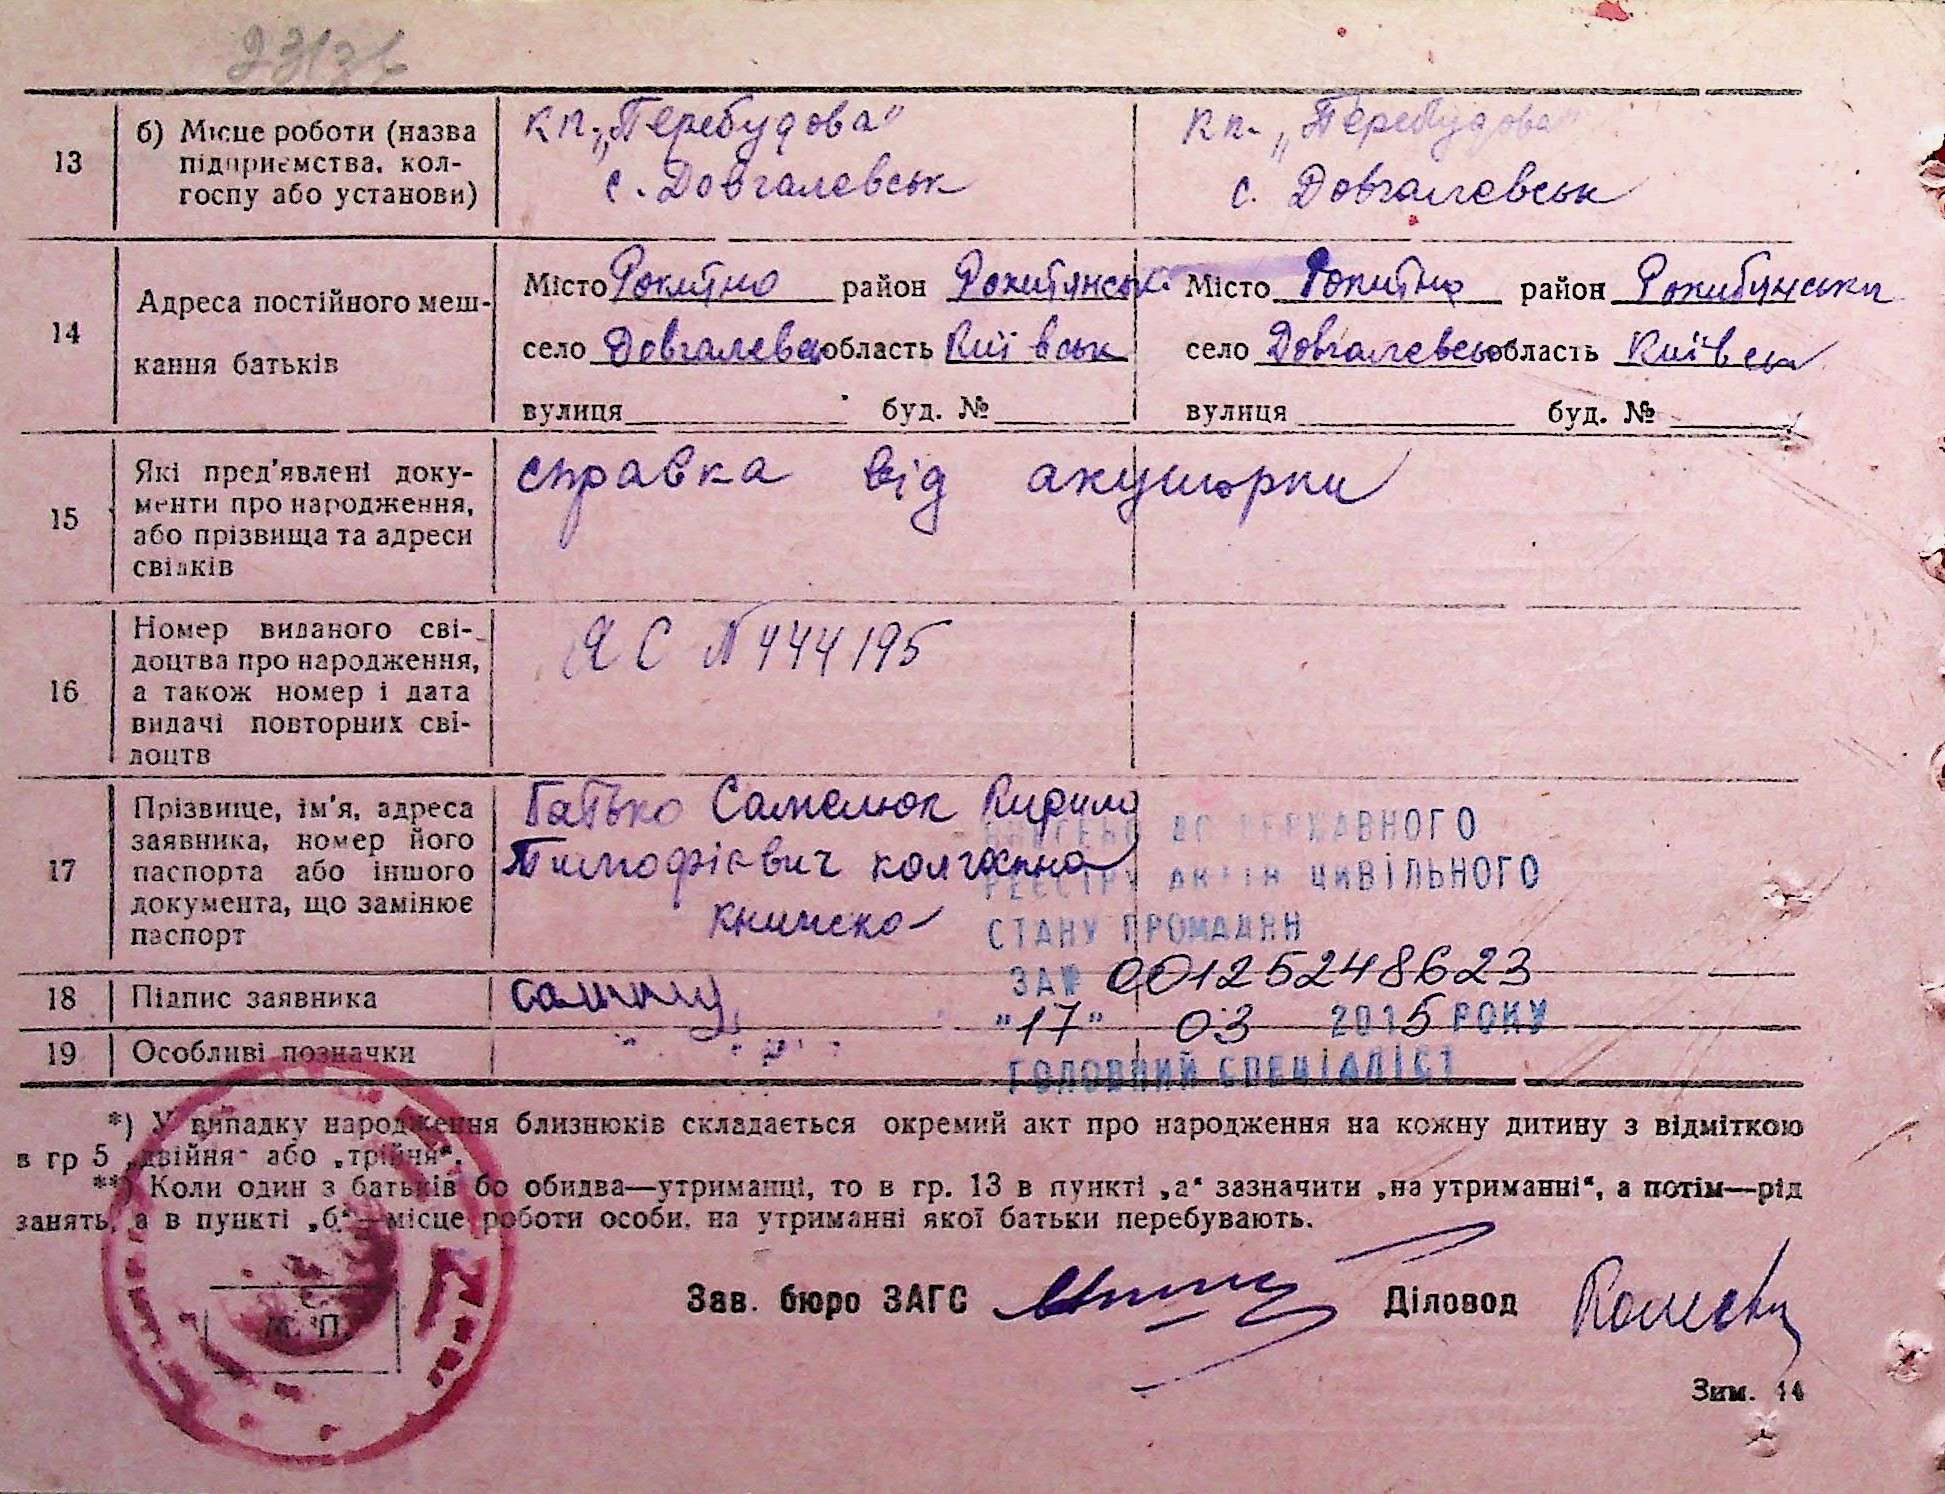 13
б) Місце роботи (назва
підприємства, кол-
госпу або установи)
кп. „Перебудова"
с. Довгалевськ
кп. „Перебудова"
с. Довгалевськ
14
Адреса постійного меш-
кання батьків
Місто Рокитно район Рокитянськ
село Довгалевськ область Київськ
вулиця буд. №
Місто Рокитно район Рокитянськ
село Довгалевськ область Київськ
вулиця буд. №
15
Які пред'явлені доку-
менти про народження,
або прізвища та адреси
свідків
справка від акушорки
16
Номер виданого сві-
доцтва про народження,
а також номер і дата
видачі повторних сві-
доцтв
ЯС № 444195
17
Прізвище, ім'я, адреса
заявника, номер його
паспорта або іншого
документа, що замінює
паспорт
Батько Самелюк Кирило
Тимофієвич колгоспна
книжка
ДО ДЕРЖАВНОГО
РЕЄСТРУ АКТІВ ЦИВІЛЬНОГО
СТАНУ ГРОМАДЯН
ЗА № 00125248623
"17" 03 2015 РОКУ
ГОЛОВНИЙ СПЕЦІАЛІСТ
18 Підпис заявника
19 Особливі позначки
*) У випадку народження близнюків складається окремий акт про народження на кожну дитину з відміткою
в гр 5 „двійня" або „трійня".
**) Коли один з батьків бо обидва—утриманці, то в гр. 13 в пункті „а" зазначити „на утриманні", а потім—рід
занять, а в пункті „б"—місце роботи особи, на утриманні якої батьки перебувають.
М. П.
Зав. бюро ЗАГС Діловод
Зим. 14